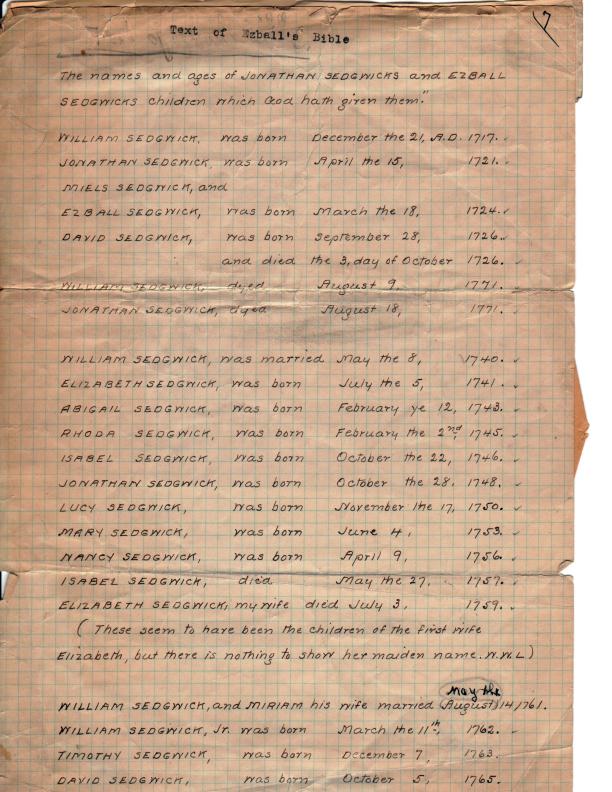 7
Text of Ezball's Bible
The names and ages of JONATHAN SEDGWICKS and EZBALL
SEDGWICKS children which God hath given them."
WILLIAM SEDGWICK, was born December the 21, A.D. 1717.
JONATHAN SEDGWICK, was born April the 15, 1721.
MIELS SEDGWICK, and
EZBALL SEDGWICK, was born March the 18, 1724.
DAVID SEDGWICK, was born September 28, 1726.
and died the 3, day of October 1726.
WILLIAM SEDGWICK, dyed August 9, 1771.
JONATHAN SEDGWICK, dyed August 18, 1771.
WILLIAM SEDGWICK, was married May the 8, 1740.
ELIZABETH SEDGWICK, was born July the 5, 1741.
ABIGAIL SEDGWICK, was born February ye 12, 1743.
RHODA SEDGWICK, was born February the 2nd, 1745.
ISABEL SEDGWICK, was born October the 22, 1746.
JONATHAN SEDGWICK, was born October the 28, 1748.
LUCY SEDGWICK, was born November the 17, 1750.
MARY SEDGWICK, was born June 4, 1753.
NANCY SEDGWICK, was born April 9, 1756.
ISABEL SEDGWICK, died May the 27, 1757.
ELIZABETH SEDGWICK, my wife died July 3, 1759.
( These seem to have been the children of the first wife
Elizabeth, but there is nothing to show her maiden name. W.W.L)
May the
WILLIAM SEDGWICK, and MIRIAM his wife married (August) 14, 1761.
WILLIAM SEDGWICK, Jr. was born March the 11th, 1762.
TIMOTHY SEDGWICK, was born December 7, 1763.
DAVID SEDGWICK, was born October 5, 1765.